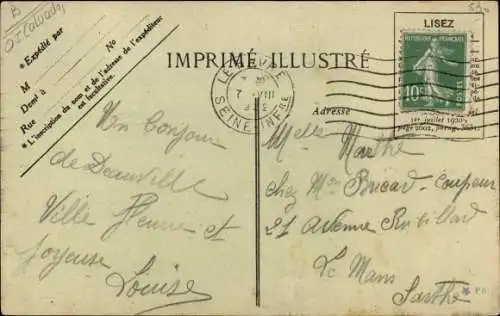 B
O5 Calvados
LISEZ
* Expédié par
M
Dem^t à
Rue
N°
* L'inscription du nom et de l'adresse de l'expéditeur
est facultative.
IMPRIMÉ ILLUSTRÉ
LE
7 VIII
SEINE INFRE
REPUBLIQUE FRANÇAISE
10c
POSTES
1er juillet 1920,
Adresse
Un Bonjour
de Deauville
Ville Fleurie et
Joyeuse
Louise
Melle Marthe
chez Mr Bricard - Coupeur
21 Avenue Rubillard
Le Mans
Sarthe